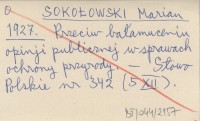 SOKOŁOWSKI Marian
1927. Przeciw bałamuceniu
opinji publicznej w sprawach
ochrony przyrody — Słowo
Polskie nr 342 (5 XII).